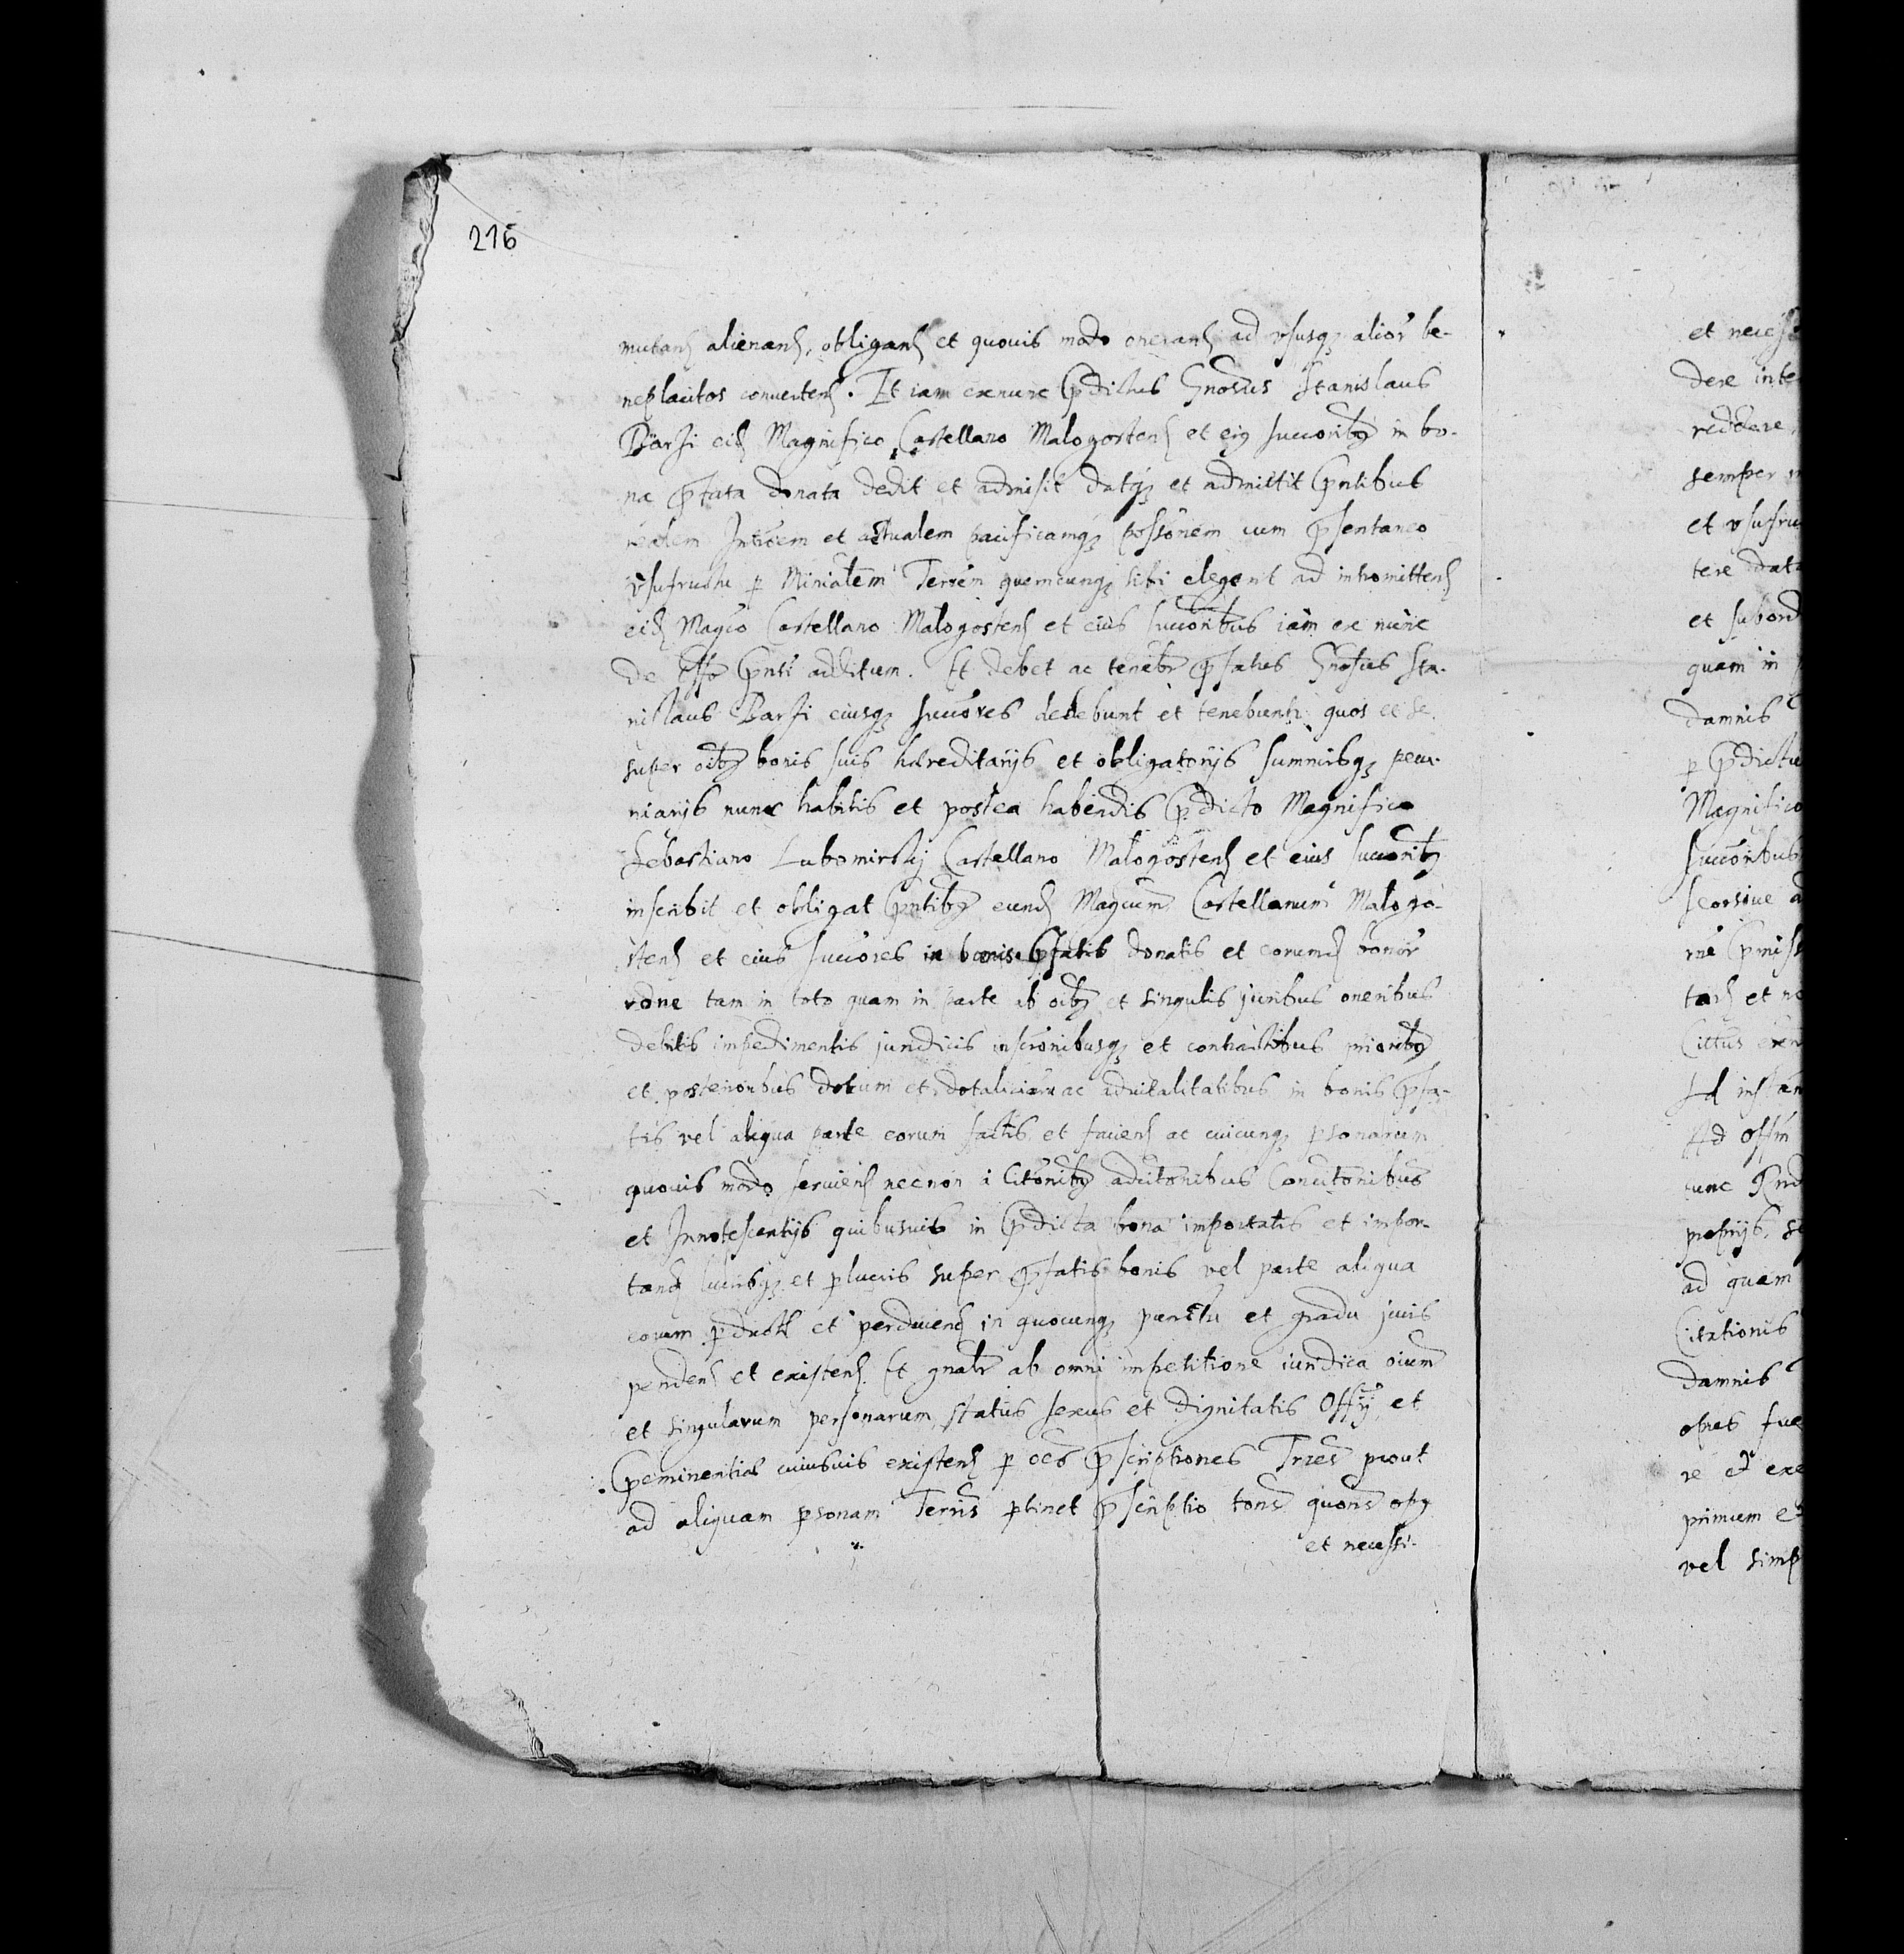 216
mutand alienand, obligand et quovis modo onerand ad ususq alior be-
neplacitos convertend. Et iam exnunc pdictus Gnosus Stanislaus
Barzi eid Magnifico Castellano Malogostens et eig succoribg in bo-
na pfata donata dedit et admisit datq et admittit pntibus
realem Intrôem et actualem pacificamq possonem cum psentaneo
usufructu p Miniãlem Terrẽm quemcunq sibi elegerit ad intromittend
eid Magco Castellano Malogostens et eius succoribus iam ex nunc
de offo pnti additum. Et debet ac tenebr pfatus Gnosus Sta-
nislaus Barzi eiusq succores debebunt et tenebuntr quos et se
super oibg bonis suis haereditarijs et obligatorijs summisq pecu-
niarijs nunc habitis et postea habendis pdicto Magnifico
Sebastiano Lubomirskj Castellano Malogostens et eius succoribg
inscribit et obligat pntibg eund Magcum Castellanum Malogo-
stens et eius succores in bonis pfatis donatis et eorumd bonor
rône tam in toto quam in parte ab oibg et singulis juribus oneribus
debitis impedimentis juridicis inscronibusq et contractibus prioribg
et posterioribus dotum et dotaliciar ac advitalitatibus in bonis pfa-
tis vel aliqua parte eorum factis et faciend ac cuicunq psonarum
quovis modo serviend necnon a Citonibg adcitonibus Concitonibus
et Innotescentijs quibusvis in pdicta bona importatis et impor-
tand lucrisq et plucris super pfatis bonis vel parte aliqua
eorum pduct et perducend in quocunq puncto et gradu juris
pendend et existend. Et gnalr ab omni impetitione juridica oium
et singularum personarum status sexus et dignitatis Offij et
peminentiae cuiusvis existend p oes pscriptiones Trres prout
ad aliquam psonam Terris ptinet pscriptio tons quons opg
et necessi-
et necess
dere inte
reddere
semper
et usufru
tere data
et subord
quam in
damnis
p pdictu
Magnifico
succoribus
seorsive
rne pmiss
tand et no
Citus
Id instan
Ad offm
tunc
proprijs
ad quam
Citationis
damnis
opus fue
re et exe
primum et
vel simp